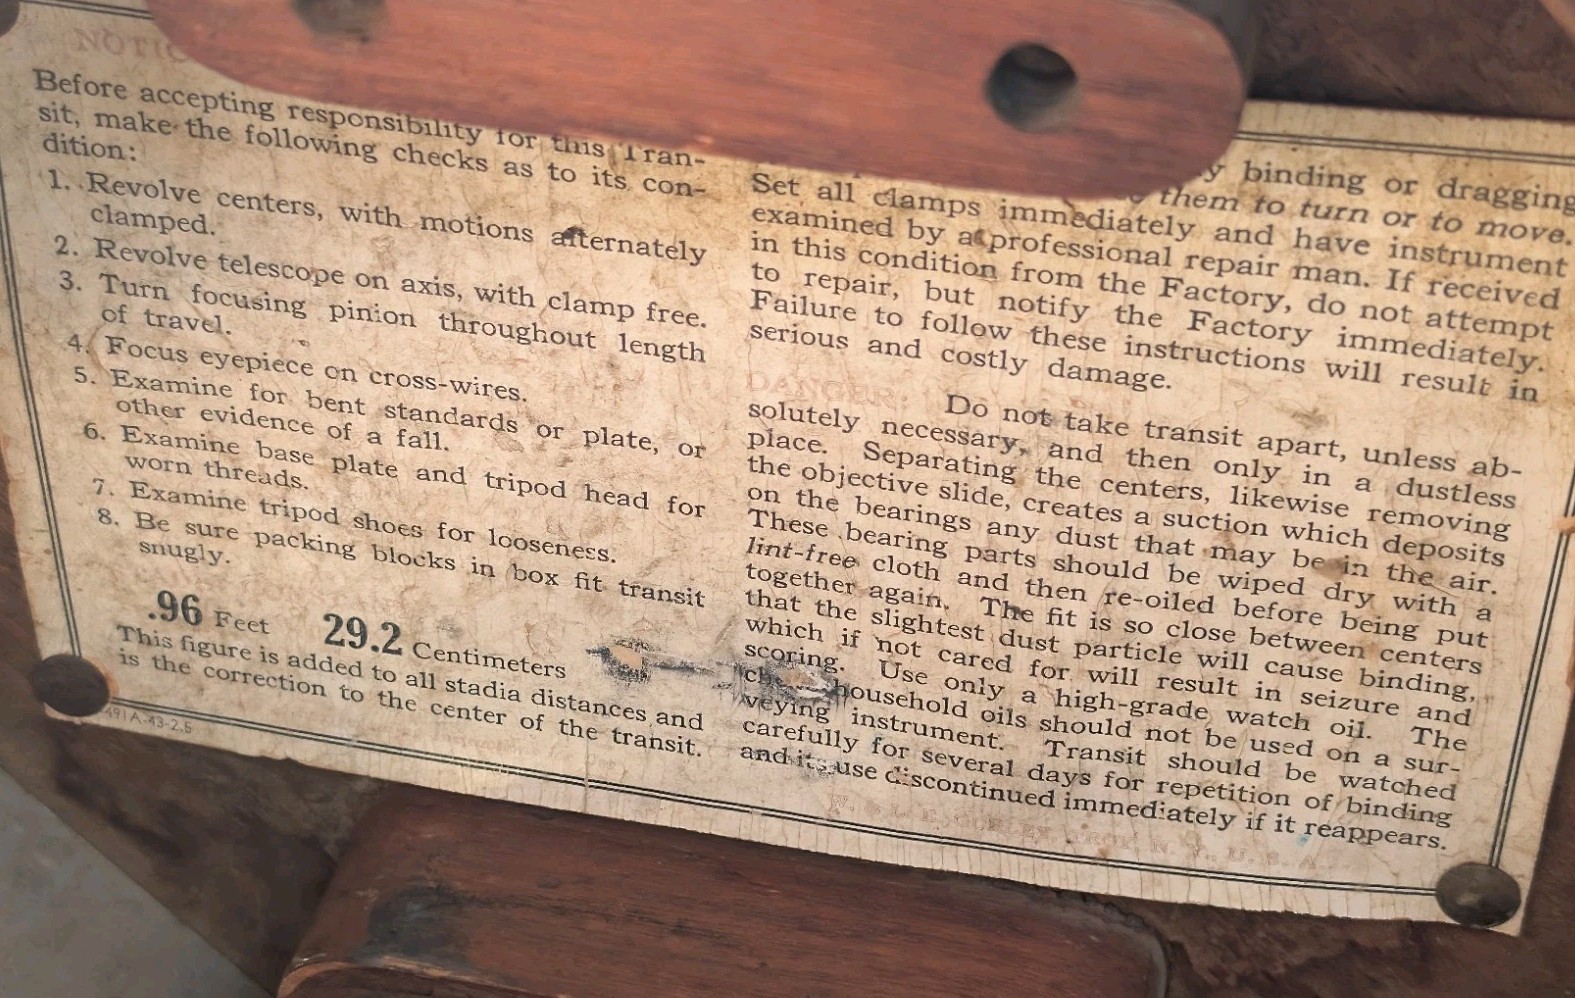 NOTIC
Before accepting responsibility for this Tran-
sit, make the following checks as to its con-
dition:
1. Revolve centers, with motions alternately
clamped.
2. Revolve telescope on axis, with clamp free.
3. Turn focusing pinion throughout length
of travel.
4. Focus eyepiece on cross-wires.
5. Examine for bent standards or plate, or
other evidence of a fall.
6. Examine base plate and tripod head for
worn threads.
7. Examine tripod shoes for looseness.
8. Be sure packing blocks in box fit transit
snugly.
.96 Feet 29.2 Centimeters
This figure is added to all stadia distances and
is the correction to the center of the transit.
491A-43-2.5
y binding or dragging
them to turn or to move.
Set all clamps immediately and have instrument
examined by a professional repair man. If received
in this condition from the Factory, do not attempt
to repair, but notify the Factory immediately.
Failure to follow these instructions will result in
serious and costly damage.
DANGER: Do not take transit apart, unless ab-
solutely necessary, and then only in a dustless
place. Separating the centers, likewise removing
the objective slide, creates a suction which deposits
on the bearings any dust that may be in the air.
These bearing parts should be wiped dry with a
lint-free cloth and then re-oiled before being put
together again. The fit is so close between centers
that the slightest dust particle will cause binding,
which if not cared for will result in seizure and
scoring. Use only a high-grade watch oil. The
household oils should not be used on a sur-
veying instrument. Transit should be watched
carefully for several days for repetition of binding
and its use discontinued immediately if it reappears.
W. & L. E. GURLEY, TROY, N. Y., U. S. A.